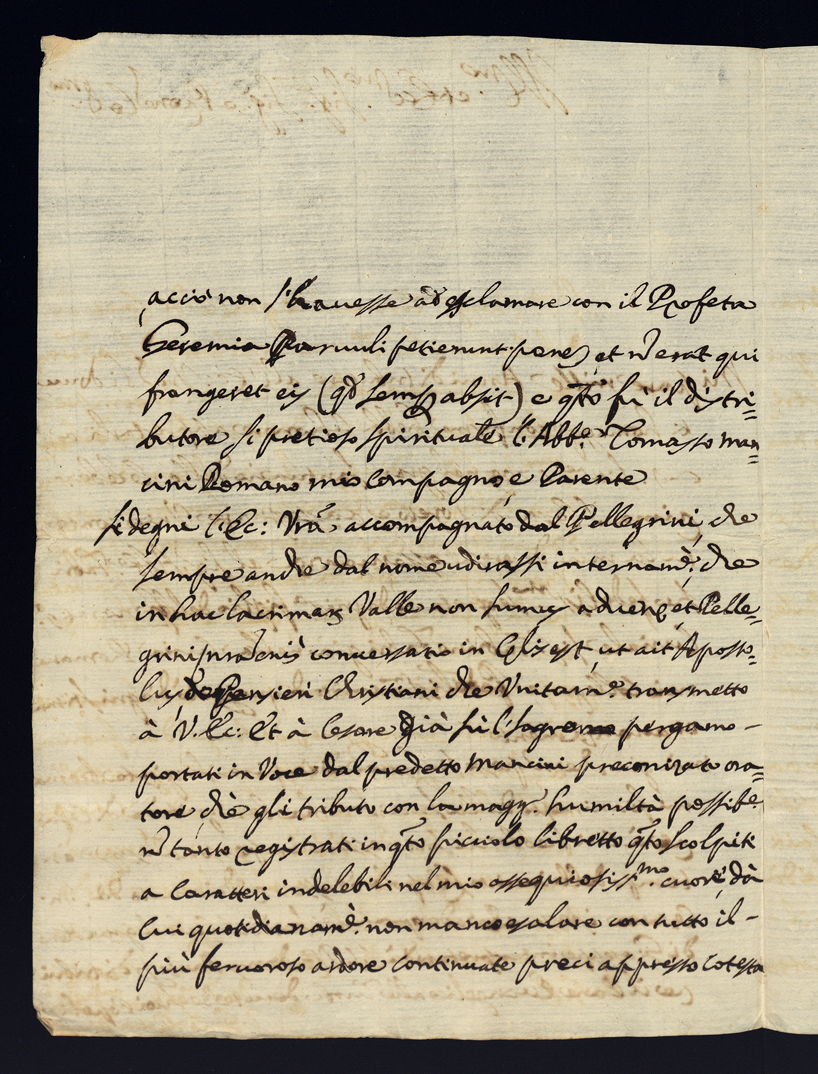 acciò non s'hauesse ad esclamare con il Profeta
Geremia Paruuli petierunt panē et nō erat qui
frangeret eis (qđ semp absit) e qto fù il distri=
butore si pretioso spirituale l'Abbe Tomasso man=
cini Romano mio Compagno, e Parente
si degni l'Ec: Vrã accompagnato dal Pellegrini, che
sempre anche dal nome udirassi internamẽ: che
in hac lacrimar Valle non sumus aduenę, et Pelle=
grini, nrã enĩ conuersatio in Cęlis est, ut ait Aposto=
lus, Pensieri Christiani che Unitamẽ trasmetto
à V. Ec: et à Cesare già fù l' pergamo –
portati in Voce dal predetto Mancini preconizato ora=
tore, chè gli tributo con la magg. humiltà possibe
nõ tanto registrati in qto picciolo libretto qto scolpiti
a Caratteri indelebili nel mio ossequiosissmo cuore, dà
cui quotidianamẽ. non manco esalare con tutto il –
più feruoroso ardore continuate preci appresso Cotesta